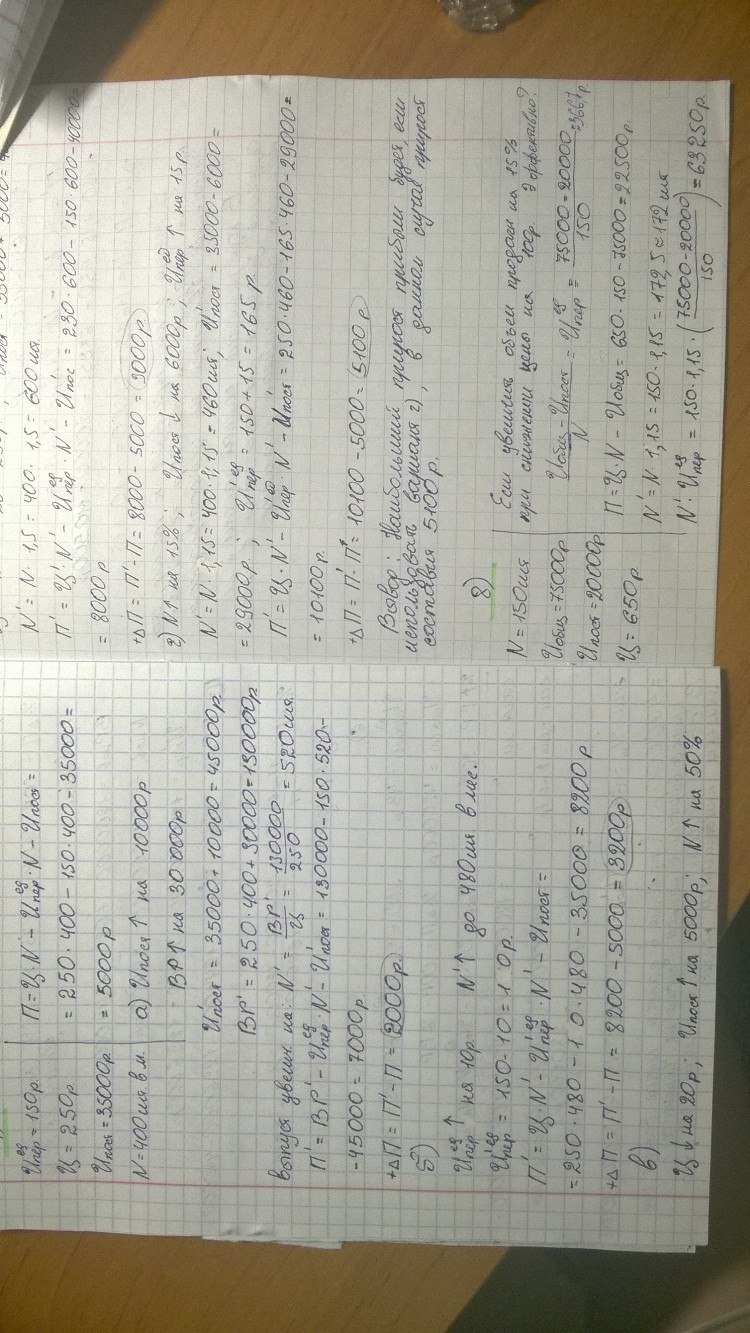 Ипер^ед = 150р.
Ц = 250р.
Ипост = 35000р
N = 400шт в м.
П = Ц·N − Ипер^ед·N − Ипост =
= 250·400 − 150·400 − 35000 =
= 5000р
а) Ипост ↑ на 10000р
ВР ↑ на 30 000р
И'пост = 35000 + 10000 = 45000р.
ВР' = 250·400 + 30000 = 130000р.
выпуск увелич на: N' = ВР'/Ц = 130000/250 = 520шт.
П' = ВР' − Ипер^ед·N' − И'пост = 130000 − 150·520 −
− 45000 = 7000р.
+ΔП = П' − П = 2000р.
б)
Ипер^ед ↑ на 10р. N' ↑ до 480шт в мес.
И'пер^ед = 150 · 10 = 1 0р.
П' = Ц·N' − И'пер^ед·N' − Ипост =
= 250·480 − 1 0·480 − 35000 = 8200р
+ΔП = П' − П = 8200 − 5000 = 3200р
в)
Ц ↓ на 20р; Ипост ↑ на 5000р; N ↑ на 50%
35000 + 5000 =
N' = N·1,5 = 400·1,5 = 600шт.
П' = Ц'·N' − Ипер^ед·N' − И'пос = 230·600 − 150·600 − 40000 =
= 8000р
+ΔП = П' − П = 8000 − 5000 = 3000р.
г) N ↑ на 15%; Ипост ↓ на 6000р; Ипер^ед ↑ на 15р.
N' = N·1,15 = 400·1,15 = 460шт; И'пост = 35000 − 6000 =
= 29000р.; И'пер^ед = 150 + 15 = 165р.
П' = Ц·N' − И'пер^ед·N' − И'пост = 250·460 − 165·460 − 29000 =
= 10100р.
+ΔП = П' − П = 10100 − 5000 = 5100р
Вывод: Наибольший прирост прибыли будет, если
использовать вариант г), в данном случае прирост
составил 5100р.
8)
N = 150шт
Иобщ = 75000р
Ипост = 20000р
Ц = 650р
Если увеличить объем продаж на 15%
при снижении цены на 100р. Эффективно?
(Иобщ − Ипост)/N = Ипер^ед = (75000 − 20000)/150 = 366,7р
П = Ц·N − Иобщ = 650·150 − 75000 = 22500р.
N' = N·1,15 = 150·1,15 = 172,5 ≈ 172шт
N'·Ипер^ед = 150·1,15·((75000 − 20000)/150) = 63250р.